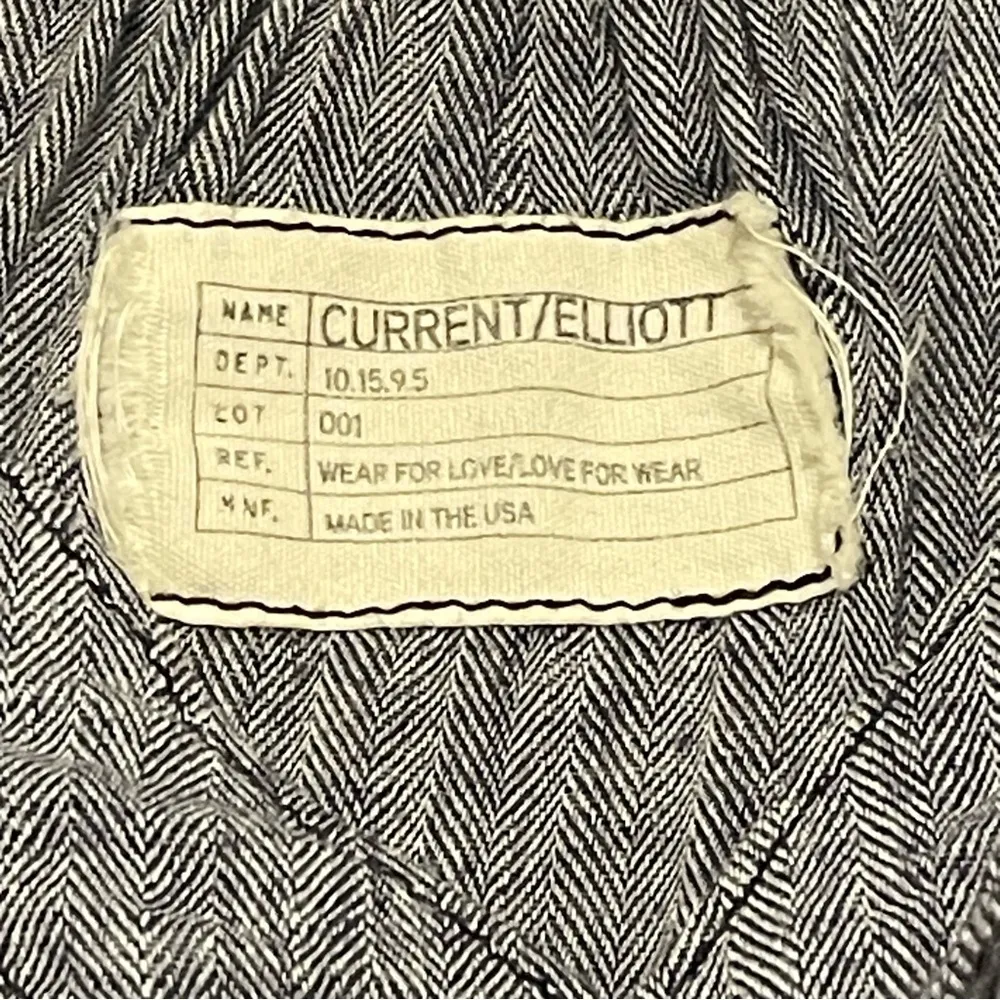 NAME CURRENT/ELLIOTT
DEPT. 10.15.9.5
LOT 001
REF. WEAR FOR LOVE/LOVE FOR WEAR
MNF. MADE IN THE USA